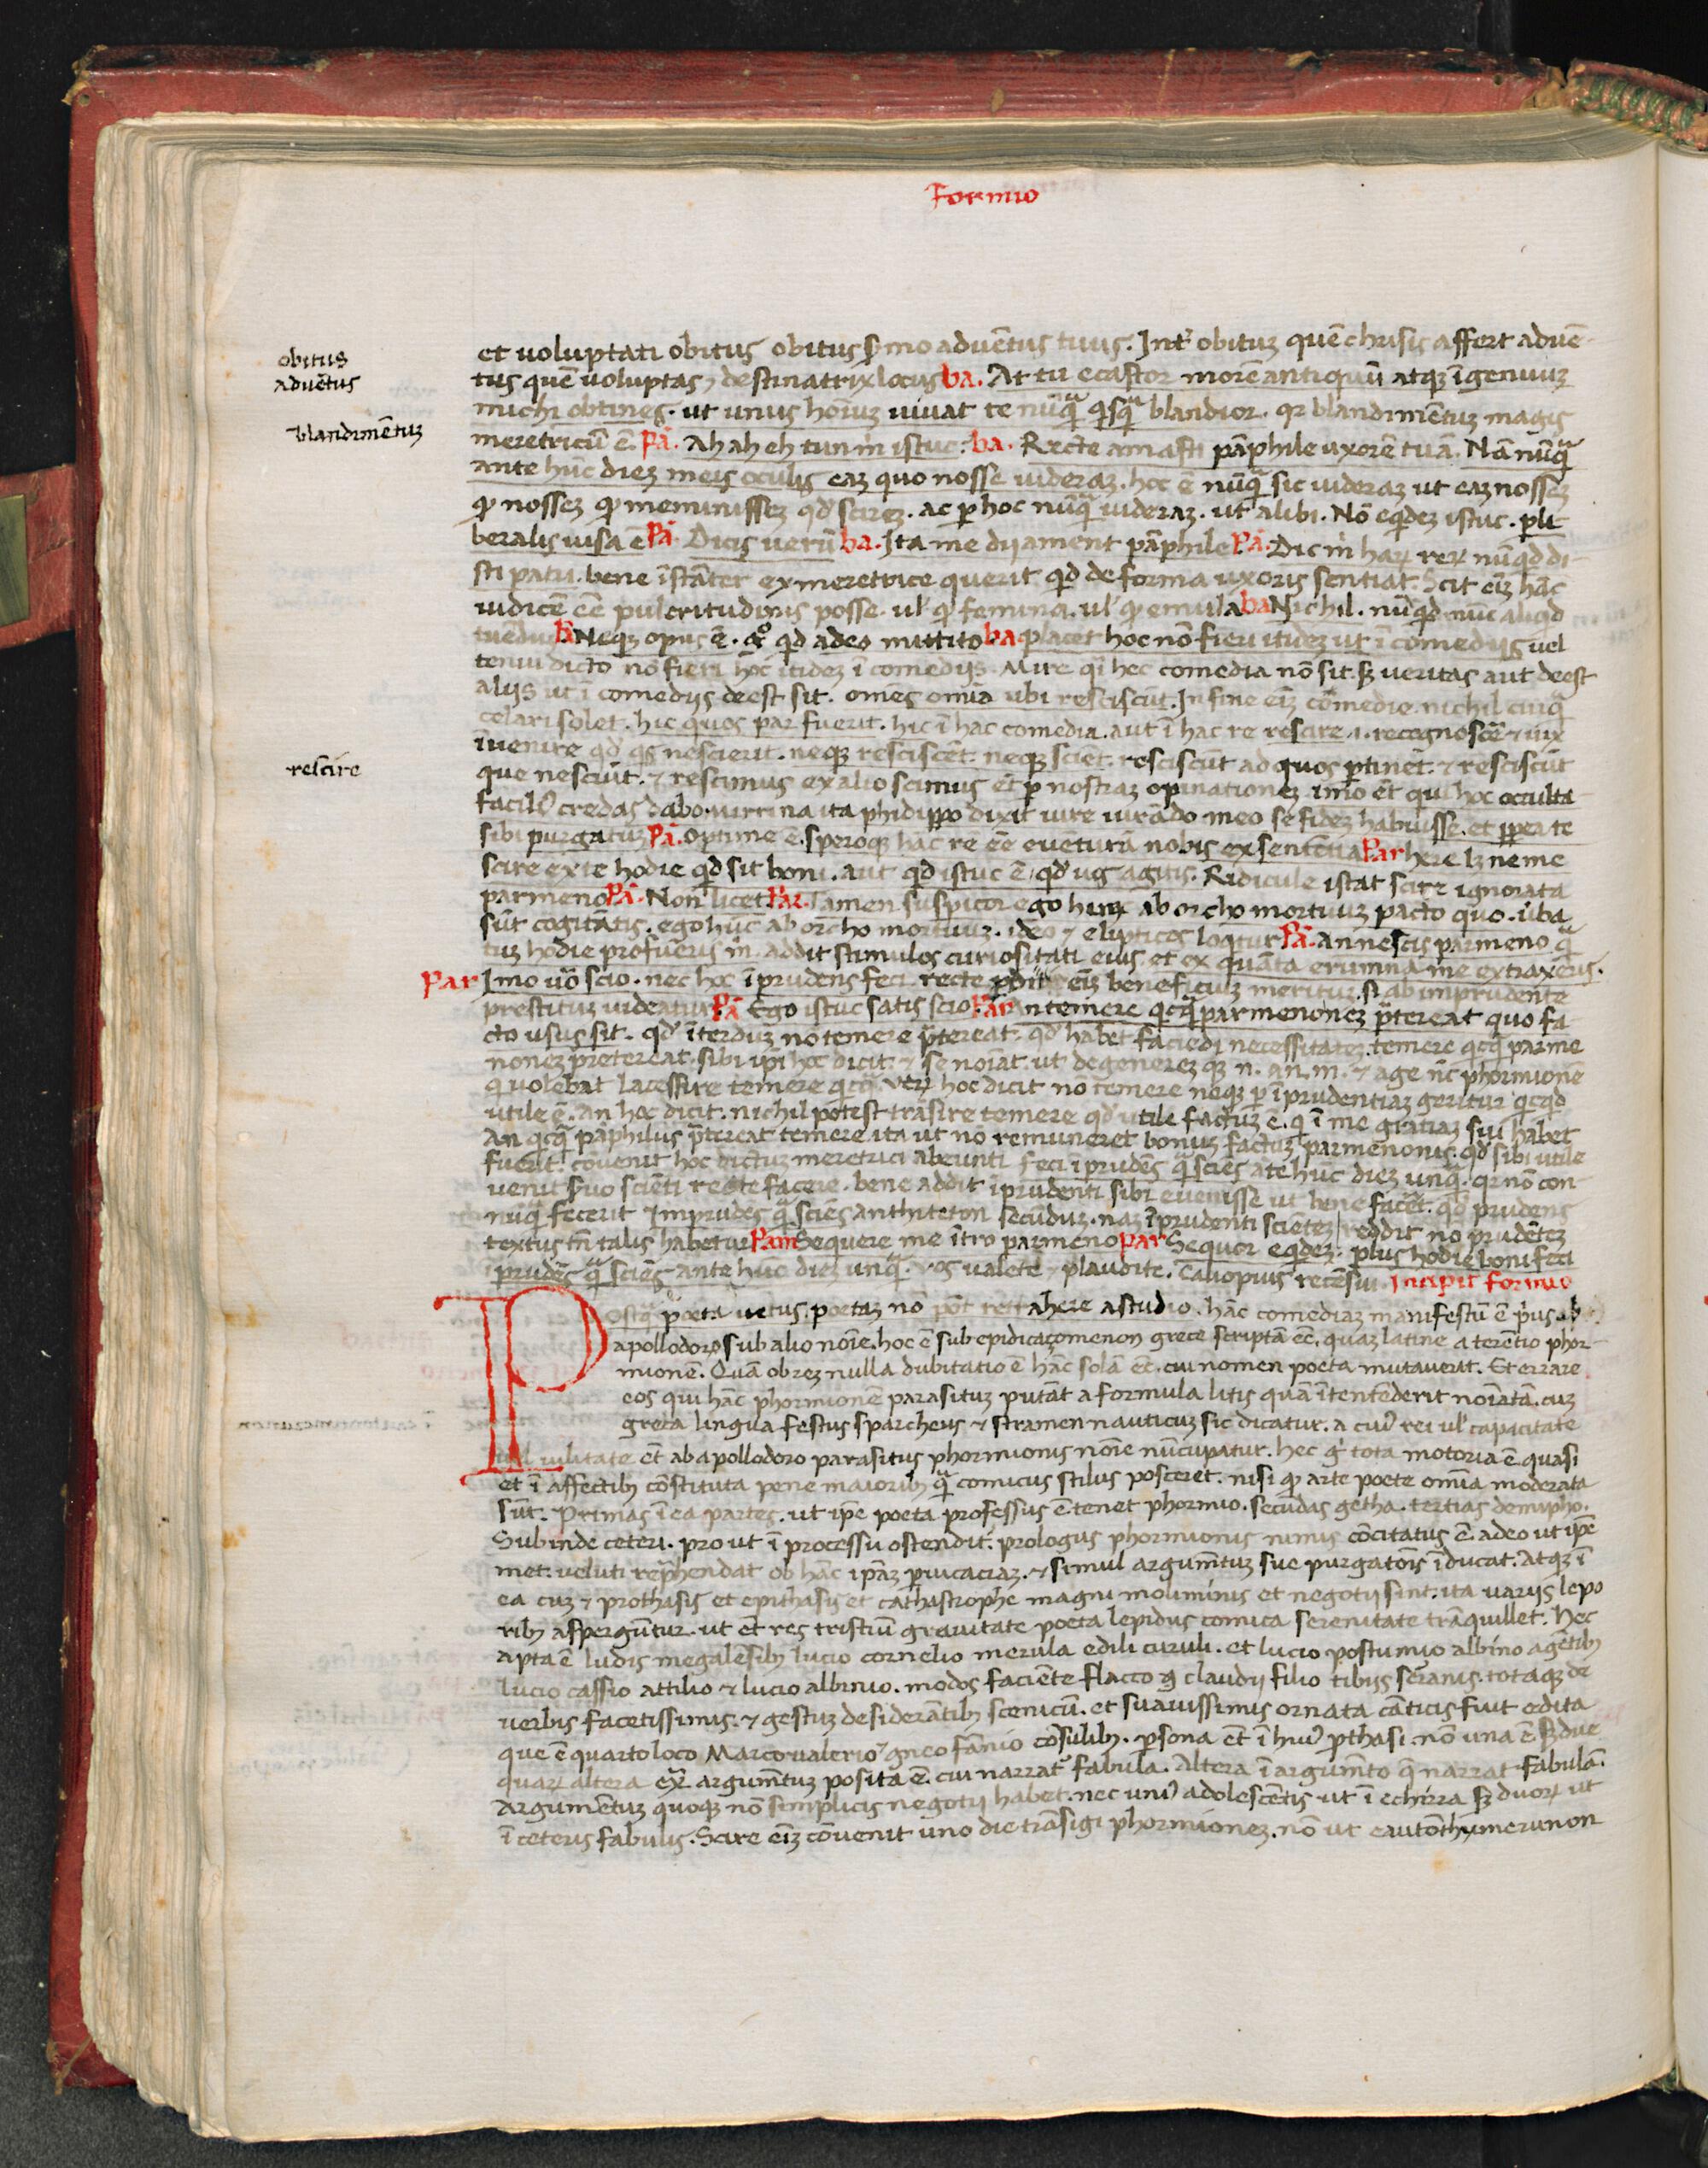 Formio
obitus
aduētus
blandimētuʒ
rescire
et uoluptati obitus obitus sermo aduētus tuus. Int' obituʒ quē chrisis affert aduē
tus quē uoluptas, destinatrix locus ba. At tu ecastor morē antiquū atqʒ īgenuuʒ
michi obtines. ut unus hoīuʒ uiuat te nūq̄ qisq̄ blandior. qr blandimētuʒ magis
meretriciū ē. Pā. Ah ah eh tun m istuc. ba. Recte amasti pāphile uxorē tuā. Nā nūq̄
ante hūc dieʒ meis oculis eaʒ quo nosse uideraʒ. hoc ē nūq̄ sic uideraʒ ut eaʒ nosseʒ
qͥ nosseʒ qͥ meminisseʒ qd' scireʒ. ac p hoc nūq̄ uideraʒ. ut alibi. Nō eqdeʒ istuc. plī
beralis uisa ē Pā. Dicis uerū ba. Ita me dij ament pāphile Pā. Dic m haꝝ reꝝ nūqd di
sti patri. bene īstāter ex meretrice querit qd de forma uxoris sentiat. Scit eīʒ hāc
iudicē eē pulcritudinis posse. ul' qͥ femina. ul' qͥ emula ba Nichil. nūqd nūc aliqd
Pā Neqʒ opus ē. qd adeo mittito ba placet hoc nō fieri itideʒ ut ī comedijs uel
tenui dicto nō fieri hoc itideʒ ī comedijs. Mire qͥ hec comedia nō sit. sʒ ueritas aut deest
alijs ut ī comedijs deest sit. omēs omīa ubi resciscūt. In fine eīʒ cōmedie. nichil cuiq̄
celari solet. hic quos par fuerit. hic ī hac comedia. aut ī hac re rescire .i. recognoscē & uix
īuenire qd' qs nescierit. neqʒ resciscēt. neqʒ sciēt. resciscūt ad quos ptinēt. & resciscūt
que nesciūt. & rescimus ex alio scimus ēt p nostraʒ opinationeʒ. imo ēt qui hoc occulta
facili' credas dabo. mirrina ita phidippo dixit iure iurādo meo se fideʒ habuisse. et pp ea te
sibi purgatuʒ Pā. Optime ē. speroqʒ hāc rē eē euēturā nobis ex sentētia Par here lʒ ne me
scire ex te hodie qd sit boni. aut qd istuc ē, qd' ug agitis. Ridicule istat scire ignorata
parmeno Pā. Non licet Par. Tamen suspicor ego hunc ab orcho mortuuʒ pacto quo. ūba
sūt cogitātis. ego hūc ab orcho mortuuʒ. ideo & eliptices loqtur Pā. An nescis parmeno q̄
tuʒ hodie profueris m. addit stimulos curiositati eius et ex quāta erumna me extraxeris.
Par Imo uō scio. nec hoc īprudens feci. recte eīʒ beneficiuʒ merituʒ. si ab imprudente
prestituʒ uideatur Pā Ego istuc satis scio Par An temere qcq̄ parmenoneʒ ptereat quo fa
cto usus sit. qd' īterduʒ nō temere ptereat. qd' habet faciēdi necessitateʒ. temere qcq̄ parme
noneʒ pretereat. sibi ipi hoc dicit. & se noīat. ut degenereʒ qʒ n. an. m. & age nc phormionē
qͥ uolebat lacessire temere qcq̄. utrʒ hoc dicit nō temere neqʒ p īprudentiaʒ geritur qcqd
utile ē. an hoc dicit. nichil potest trāsire temere qd' utile factuʒ ē. qͥ ī me gratiaʒ sui habet
An qcq̄ pāphilus ptereat temere ita ut nō remuneret bonuʒ factuʒ parmenonis. qd' sibi utile
fuerit. cōuenit hoc dictuʒ meretrici abeunti feci īprudēs q̄ sciēs āte hūc dieʒ unq̄. qr nō con
uenit suo sciēti recte facere. bene addit īprudenti sibi euenisse ut bene facēt. qd' prudens
nūq̄ fecerit Imprudēs q̄ sciēs anthiteton secūduʒ. naʒ īprudenti scienteʒ reddit nō prudēteʒ
textus tn̄ talis habetur Pam Sequere me ītro parmeno Par Sequor eqdeʒ. plus hodie boni feci
īprudēs q̄ sciēs ante hūc dieʒ unq̄. Vos ualete & plaudite. Caliopius recēsui. Incipit formio
Postq̄ poeta uetus. poetaʒ nō pōt retrahere a studio. hāc comediaʒ manifestū ē p'us ab
apollodoro sub alio noīe. hoc ē sub epidicaʒomenon grece scriptā eē. quaʒ latine a terētio phor
mionē. Quā ob reʒ nulla dubitatio ē hāc solā eē. cui nomen poeta mutauerit. Et errare
eos qui hāc phormionē parasituʒ putāt a formula litis quā ītentēderit noīatā. cuʒ
greca lingua festus sparcheus & stramen nauticuʒ sic dicatur. a cui' rei ul' capacitate
uel uilitate ēt ab apollodoro parasitus phormionis noīe nūcupatur. hec g' tota motoria ē. quasi
et ī affectibʒ cōstituta pene maioribʒ q̄ comicus stilus posceret. nisi qͥ arte poete omīa moderata
sūt. Primas ī ea partes. ut ipē poeta professus ē. tenet phormio. secūdas getha. tertias demipho.
Subinde ceteri. pro ut ī processu ostendit. prologus phormionis nimis cōcitatus ē. adeo ut ipē
met. ueluti rephendat ob hāc ipāʒ puicaciaʒ. & simul argumētuʒ sue purgatōis īducat. Atqʒ ī
ea cuʒ & prothasis et epithasis et cathastrophe magni moliminis et negotij sint. ita uarijs lepo
ribʒ asperguntur. ut ēt res tristiū grauitate poeta lepidus comica serenitate trāquillet. Hec
apta ē ludis megalēsibʒ lucio cornelio merula edili curuli. et lucio postumio albino agētibʒ
lucio cassio attilio & lucio albinio. modos faciēte flacco claudij filio tibijs seranis. totaqʒ de
uerbis facetissimis. & gestuʒ desiderātibʒ scenicū. et suauissimis ornata cāticis fuit edita
que ē quarto loco Marco ualerio gneo fānio cōsulibʒ. psona ēt ī hui' pthasi. nō una ē sʒ due
quaꝝ altera ex argumētuʒ posita ē. cui narrat' fabula. Altera ī argumēto q̄ narrat fabulā.
Argumētuʒ quoqʒ nō simplicis negotij habet. nec uni' adolescētis. ut ī echirra sʒ duoꝝ ut
ī ceteris fabulis. Scire eīʒ cōuenit uno die trāsigi phormioneʒ. nō ut eautōthumerunon